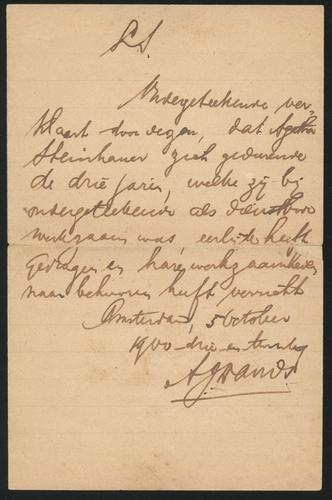 L.S.
Ondergeteekende ver-
klaart door dezen, dat Agatha
Steinhauer zich gedurende
de drie jaren, welke zij bij
ondergeteekende als dienstbode
werkzaam was, eerlijk heeft
gedragen en hare werkzaamheden
naar behooren heeft verricht
Amsterdam, 5 October
1900-drie-en-twintig